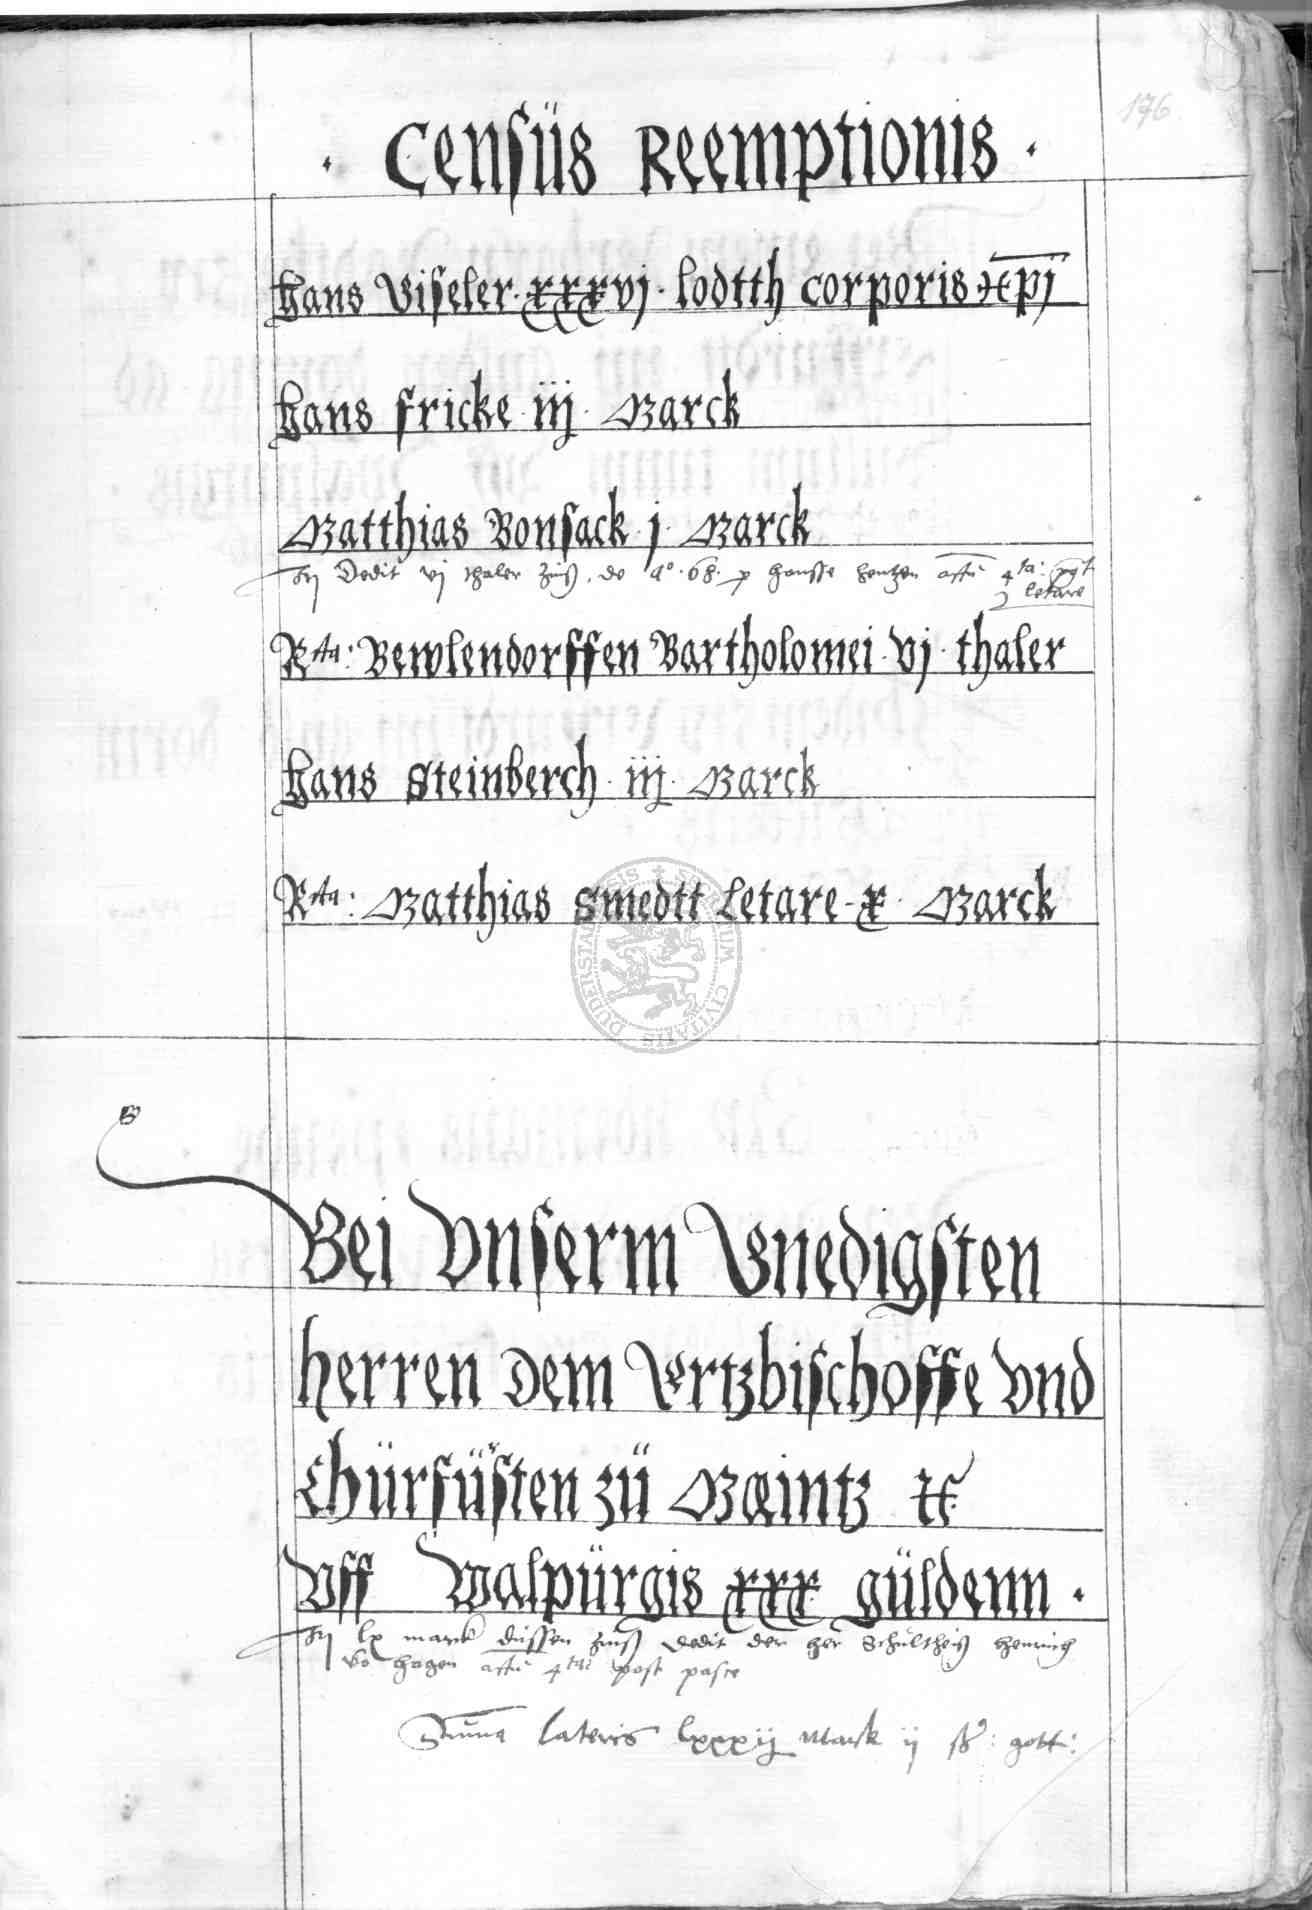 176
· Censüs Reemptionis ·
Hans Viseler · xxxvj · lodtth corporis xpj
Hans Fricke · iij · Marck
Matthias Bonsack · j · Marck
Dedit vj thaler zinß, de aº · 68 · p hansse hentzen actū 4ta: post
letare
Rta: Bewlendorffen Bartholomei · vj · thaler
Hans Steinberch · iij · Marck
Rta: Matthias Smedtt Letare · x · Marck
Bei Vnserm Gnedigsten
herren dem Ertzbischoffe vnd
Chürfüsten zü Maintz
Vff Walpürgis xxx güldenn ·
lx marck düssen zinß dedit der her Schultheiß Henrich
vō Hagen actū 4ta post pasce
Suma lateris lxxxij Mark ij ß: gott:
SIGILLUM CIVITATIS DUDERSTADENSIS